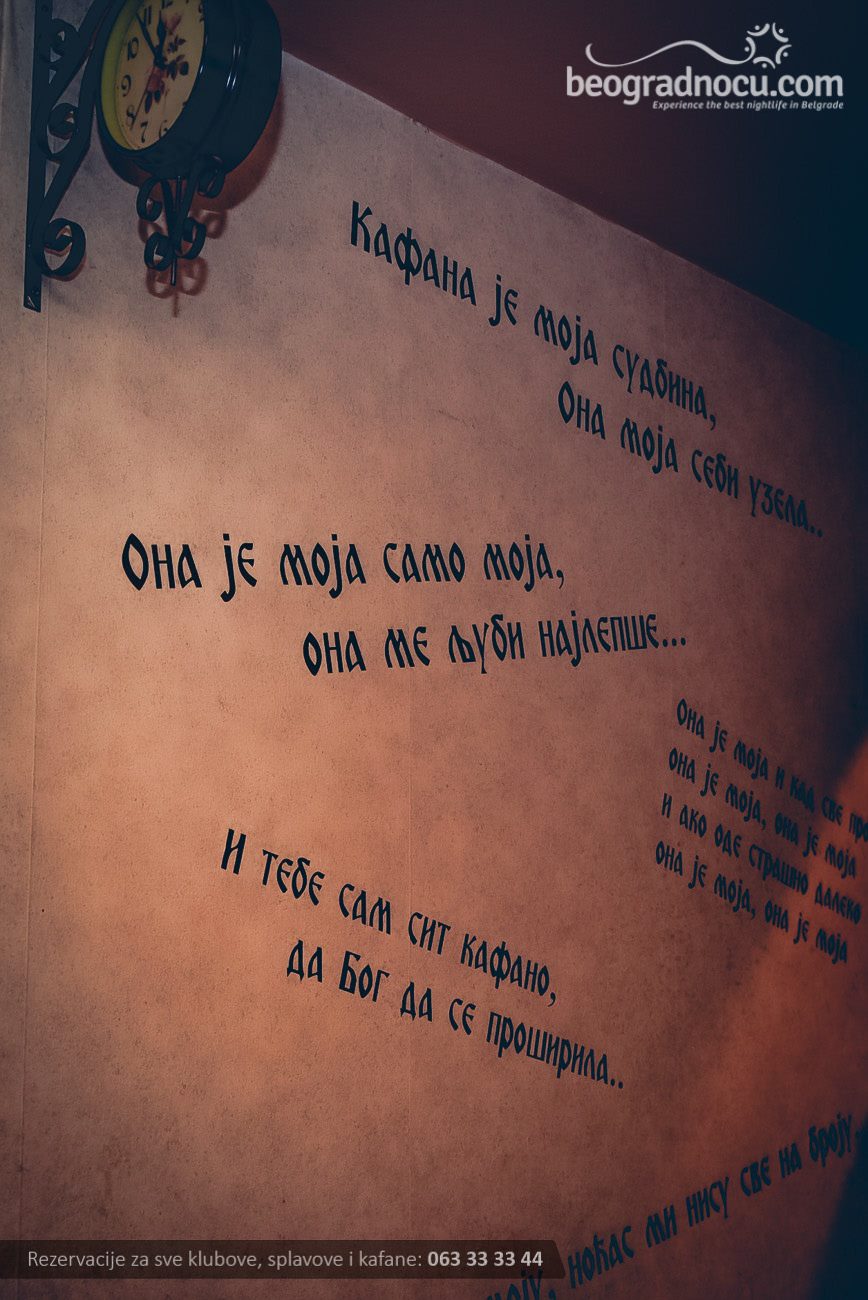 beogradnocu.com
Experience the best nightlife in Belgrade
Кафана је моја судбина,
Она моја себи узела..
Она је моја само моја,
она ме љуби најлепше...
Она је моја и кад све
она је моја, она је моја
и ако оде страшно далеко
она је моја, она је моја
И тебе сам сит кафано,
да Бог да се проширила..
ноћас ми нису све на броју
Rezervacije za sve klubove, splavove i kafane: 063 33 33 44